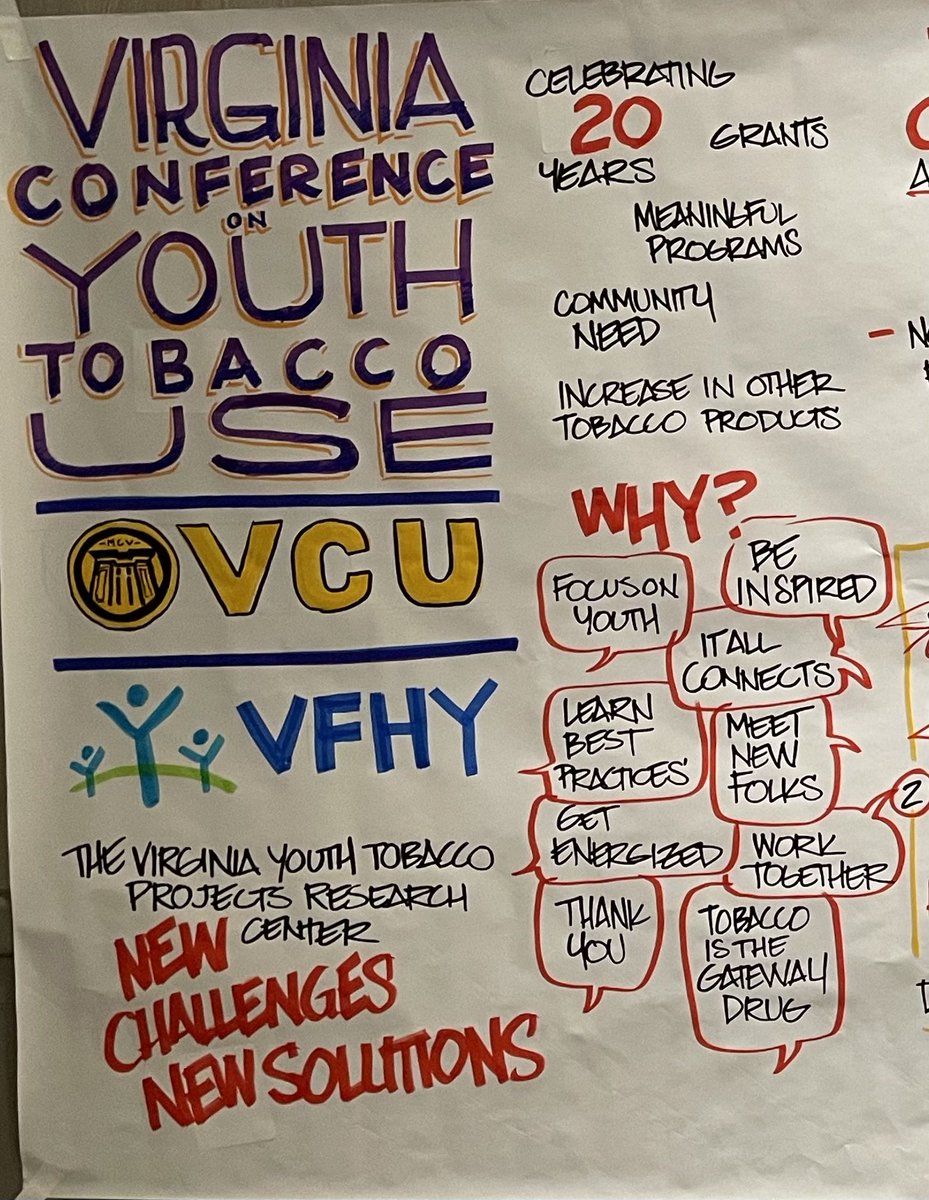 VIRGINIA
CONFERENCE
ON
YOUTH
TOBACCO
USE
MCV
VCU
VFHY
THE VIRGINIA YOUTH TOBACCO
PROJECTS RESEARCH
CENTER
NEW
CHALLENGES
NEW SOLUTIONS
CELEBRATING
20
YEARS
GRANTS
MEANINGFUL
PROGRAMS
COMMUNITY
NEED
INCREASE IN OTHER
TOBACCO PRODUCTS
WHY?
FOCUS ON
YOUTH
BE
INSPIRED
IT ALL
CONNECTS
LEARN
BEST
PRACTICES
MEET
NEW
FOLKS
GET
ENERGIZED
WORK
TOGETHER
THANK
YOU
TOBACCO
IS THE
GATEWAY
DRUG
2